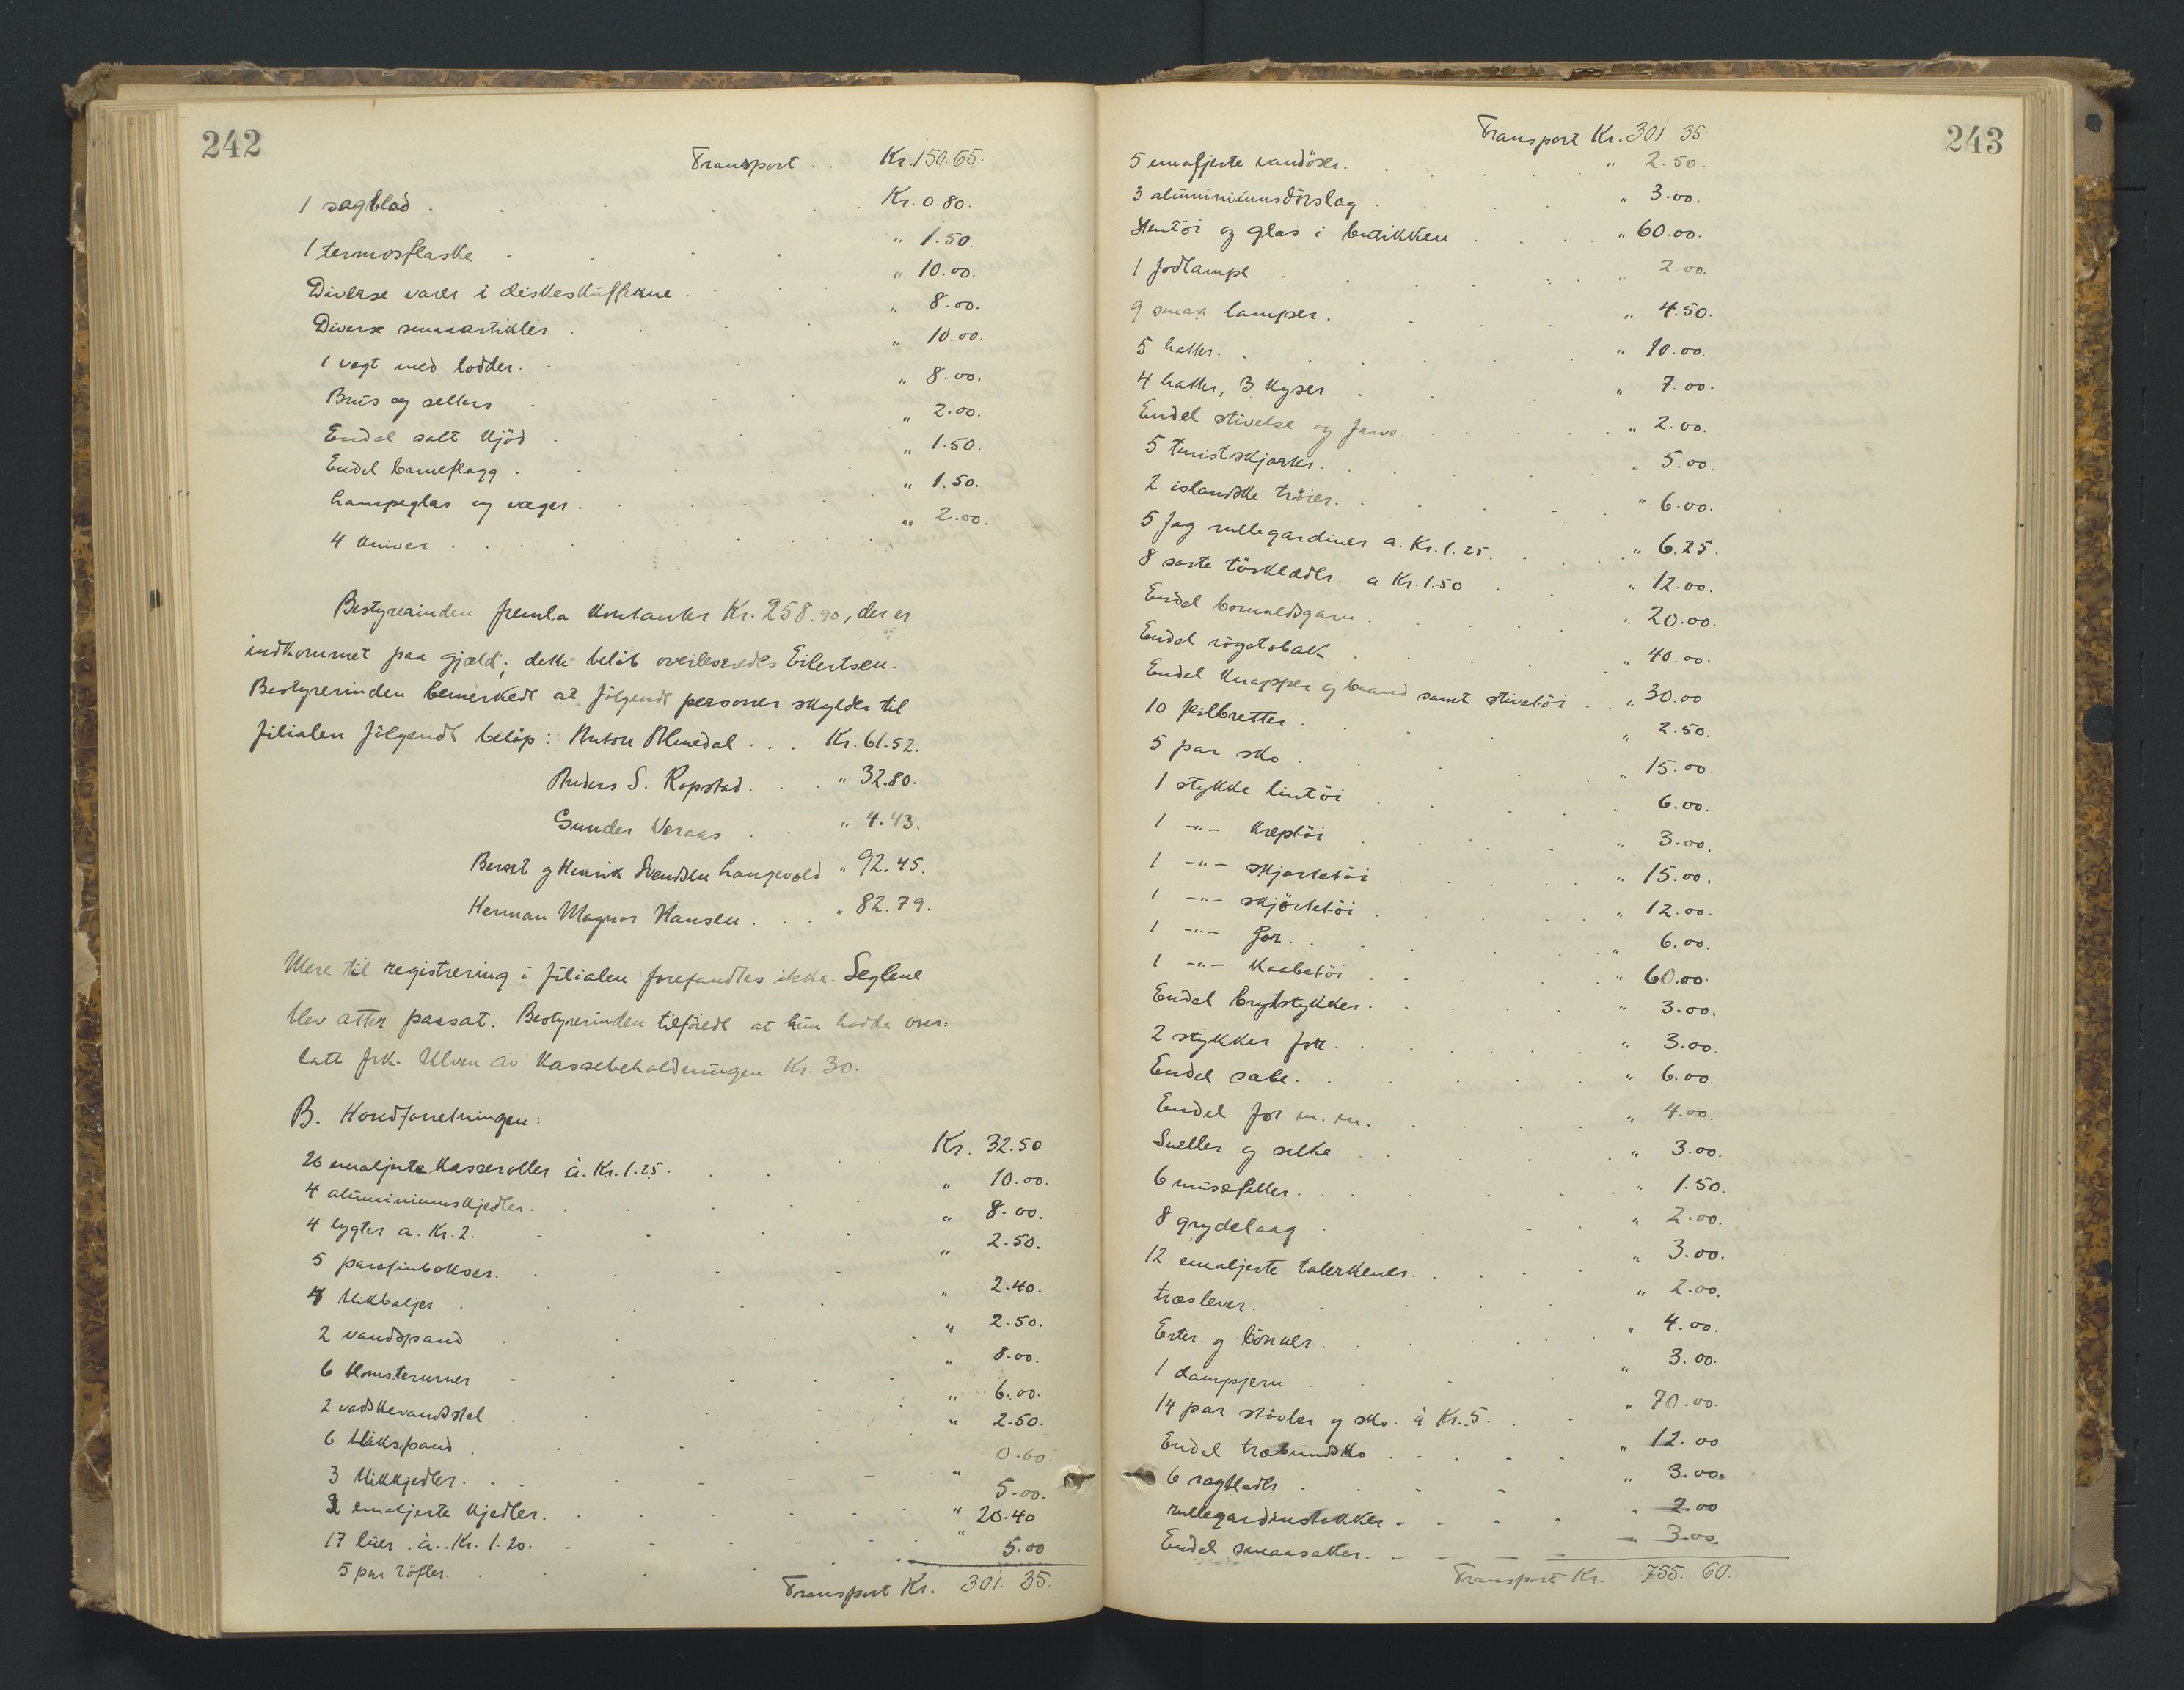 242
Transport . . Kr. 150.65.
1 sagblad . . . . . Kr. 0.80.
1 termosflaske . . . " 1.50.
Diverse varer i diskeskufferne . . " 10.00.
Diverse smaaartikler . . . " 8.00.
1 vegt med lodder. . . . " 10.00.
Brus og selters . . . " 8.00.
Endel salt kjöd . . . " 2.00.
Endel barneflagg . . . " 1.50.
Lampeglas og væger . . . " 1.50.
4 kniver . . . . . " 2.00.
Bestyrerinden fremla kontanter Kr. 258.90, der er
indkommet paa gjæld; dette belöb overleveredes Eilertsen.
Bestyrerinden bemerkede at fölgende personer skylder til
filialen fölgende belöp: Anton Almedal . . . Kr. 61.52.
Anders S. Ropstad . . . " 32.80.
Gunder Veraas . . " 4.43.
Berent og Henrik Svendsen Langevold " 92.45.
Herman Magnor Hansen . . . " 82.79.
Mere til registrering i filialen forefandtes ikke. Seglene
blev atter paasat. Bestyrerinden tilföiede at hun hadde over-
latt frk. Ulven av kassebeholdningen Kr. 30.
B. Hovedforretningen:
26 emaljerte kasseroller à. Kr. 1.25. . . Kr. 32.50
4 aluminiumskjedler. . . . " 10.00.
4 lygter a. Kr. 2. . . . " 8.00.
5 parafinbokser. . . . " 2.50.
4 blikbaljer . . . . " 2.40.
2 vandspand . . . " 2.50.
6 blomsterurner . . . " 8.00.
2 vaskevandsstel . . . " 6.00.
6 blikspand . . . " 2.60.
3 blikkjedler. . . . 0.60.
2 emaljerte kjedler. . . . " 5.00.
17 luer . à. Kr. 1.20. . . . " 20.40
5 par töfler. . . . " 5.00
Transport Kr. 301. 35.
243
Transport Kr. 301 35.
5 emaljerte vandöser. . . . " 2.50.
3 aluminiumsdörslag . . . " 3.00.
Stentöi og glas i butikken . . . " 60.00.
1 jodlampe . . . " 2.00.
9 smaa lamper. . . . " 4.50.
5 hatter. . . . " 10.00.
4 hatter, 3 kyser . . . " 7.00.
Endel stivelse og farve. . . . " 2.00.
5 turistskjorter. . . . " 5.00.
2 islandske tröier. . . . " 6.00.
5 fag rullegardiner a. Kr. 1.25. . . " 6.25.
8 sorte törklædler. a Kr. 1.50 . . " 12.00.
Endel bomuldsgarn . . . " 20.00.
Endel rögetobak . . . " 40.00.
Endel knapper og baand samt stivetöi . . " 30.00
10 fjelbretter . . . " 2.50.
5 par sko . . . " 15.00.
1 stykke lintöi . . . " 6.00.
1 -"- kreptöi . . . " 3.00.
1 -"- skjortetöi . . . " 15.00.
1 -"- skjörtetöi . . . " 12.00.
1 -"- for. . . . " 6.00.
1 -"- kaabetöi . . . " 60.00.
Endel brystykker. . . . " 3.00.
2 stykker for. . . . " 3.00.
Endel sæbe. . . . " 6.00.
Endel for m.m. . . . " 4.00.
Sneller og silke . . . " 3.00.
6 musefeller. . . . " 1.50.
8 grydelaag . . . " 2.00.
12 emaljerte talerkener. . . . " 3.00.
træslever. . . . " 2.00.
Erter og bönner. . . . " 4.00.
1 dampjern . . . " 3.00.
14 par stövler og sko. à Kr. 5. . . " 70.00.
Endel træbundsko . . . " 12.00
6 sagblade . . . " 3.00.
rullegardinstokker - . . " 2.00
Endel smaasaker. - - - 3.00.
Transport Kr. 755. 60.